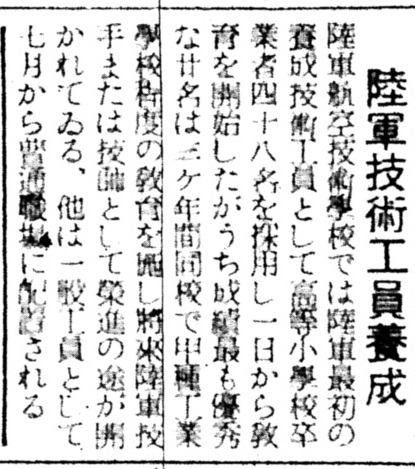 陸軍技術工員養成
陸軍航空技術學校では陸軍最初の
養成技術工員として高等小學校卒
業者四十八名を採用し一日から敎
育を開始したがうち成績最も優秀
な廿名は三ケ年間同校で甲種工業
學校程度の敎育を施し將來陸軍技
手または技師として榮進の途が開
かれてゐる、他は一般工員として
七月から普通職場に配置される